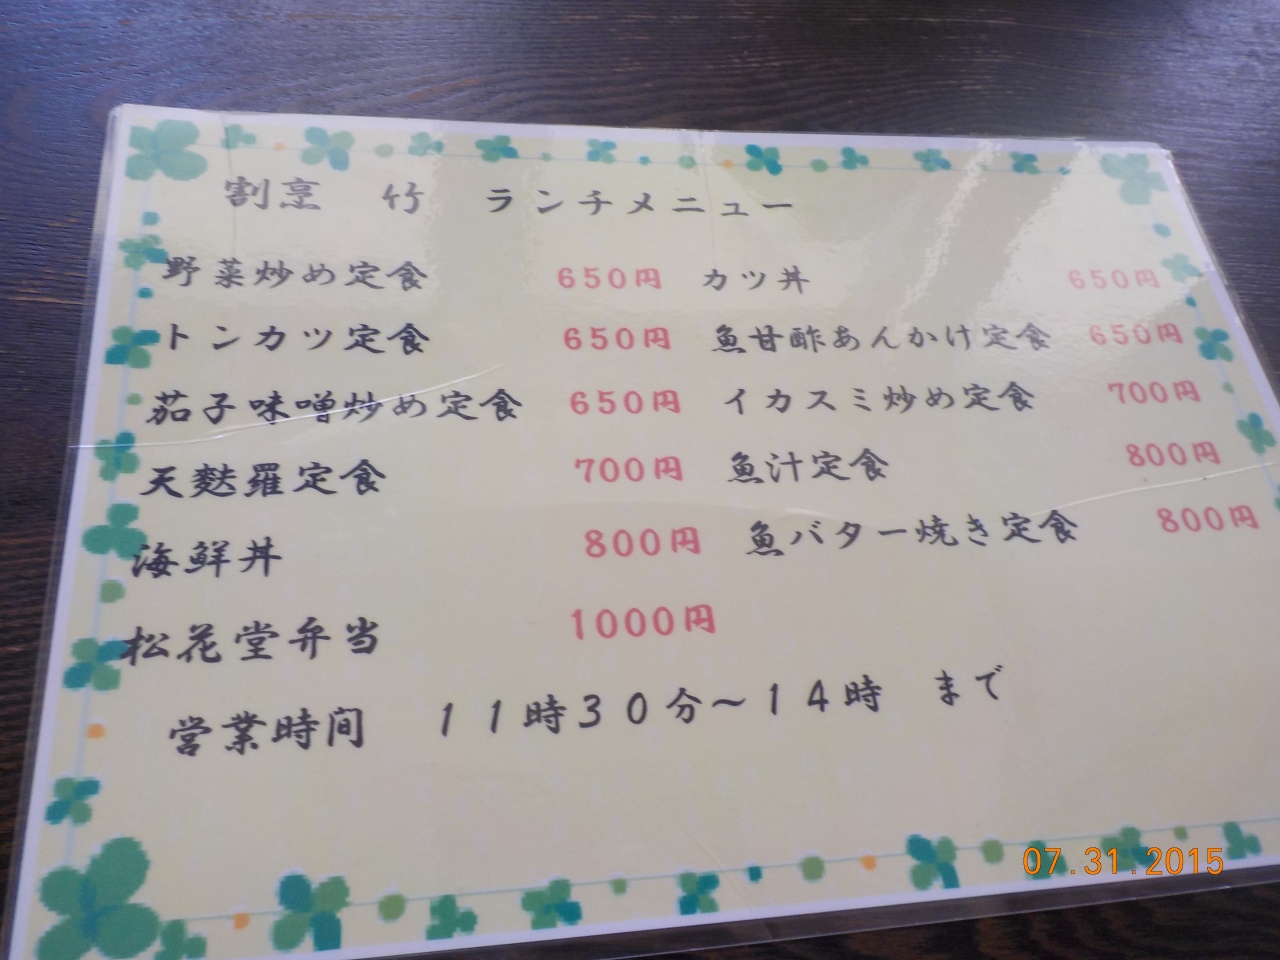 割烹 竹 ランチメニュー
野菜炒め定食 650円 カツ丼 650円
トンカツ定食 650円 魚甘酢あんかけ定食 650円
茄子味噌炒め定食 650円 イカスミ炒め定食 700円
天麩羅定食 700円 魚汁定食 800円
海鮮丼 800円 魚バター焼き定食 800円
松花堂弁当 1000円
営業時間 11時30分～14時 まで
07.31.2015